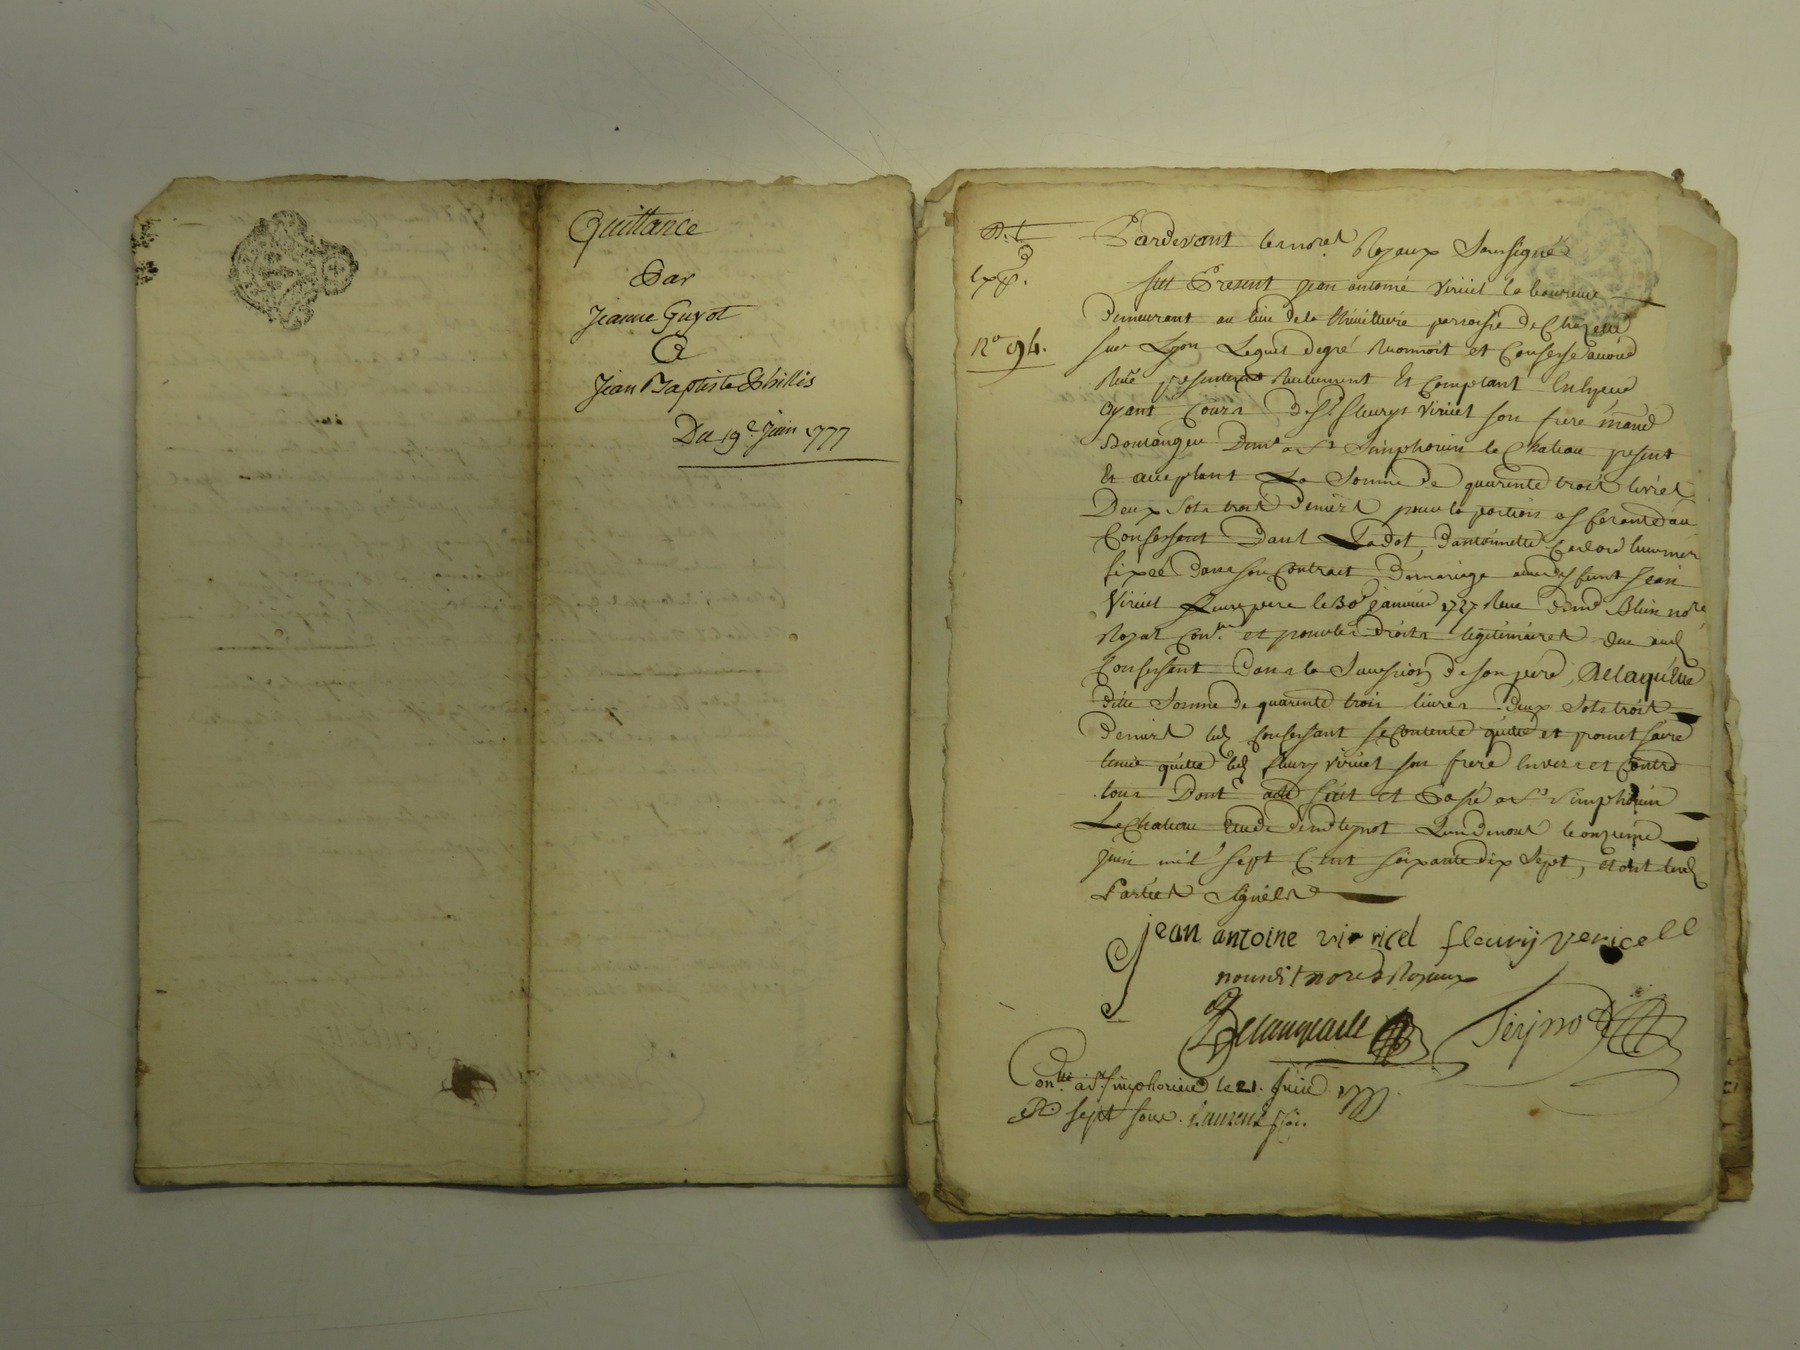 Quittance
Par
Jeanne Guyot
A
Jean Baptiste Phillis
Du 19e. Juin 1777
No 94.
Pardevant les nores Royaux Soussignés
fut Present jean antoine Viricel laboureur
demeurant au lieu de la paroisse de Chazelle
sur Lyon Lequel degré Reconnoit et Confesse avoir
Receu presentement Reelement Et Comptant En Espece
ayant Cours de Sr. fleurys Viricel son frere mand
Boulanger Demt a St Simphorien le Chateau present
Et acceptant La Somme de quarente trois livres
Deux Sols trois Deniers pour la portion afferante au
Confessant Dans La dot, dantoinette leur mere
fixée dans son Contract de mariage avec deffunt Jean
Viricel Leur pere le 30e janvier 1727 Receu Blein nore
Royal et pour les droits legitimaires due aud
Confessant Dans la Succession de son pere, De laquelle
ditte Somme de quarente trois livres deux Sols trois
Deniers led Confessant se Contente quitte et promet faire
tenir quitte led fleury Viricel son frere Envers et Contre
tous Dont acte fait et Passé a St Simphorien
Le Chateau Etude de md teynot L'un de nous le onzieme
juin mil sept Cent soixante dix sept, et ont lesd
Parties Signées
jean antoine viricel fleurij vericelle
nousdit nores Royaux
Delangealle Teynot
Conllé. a St. simphorien le 21. Juin 1777
R. sept sous.